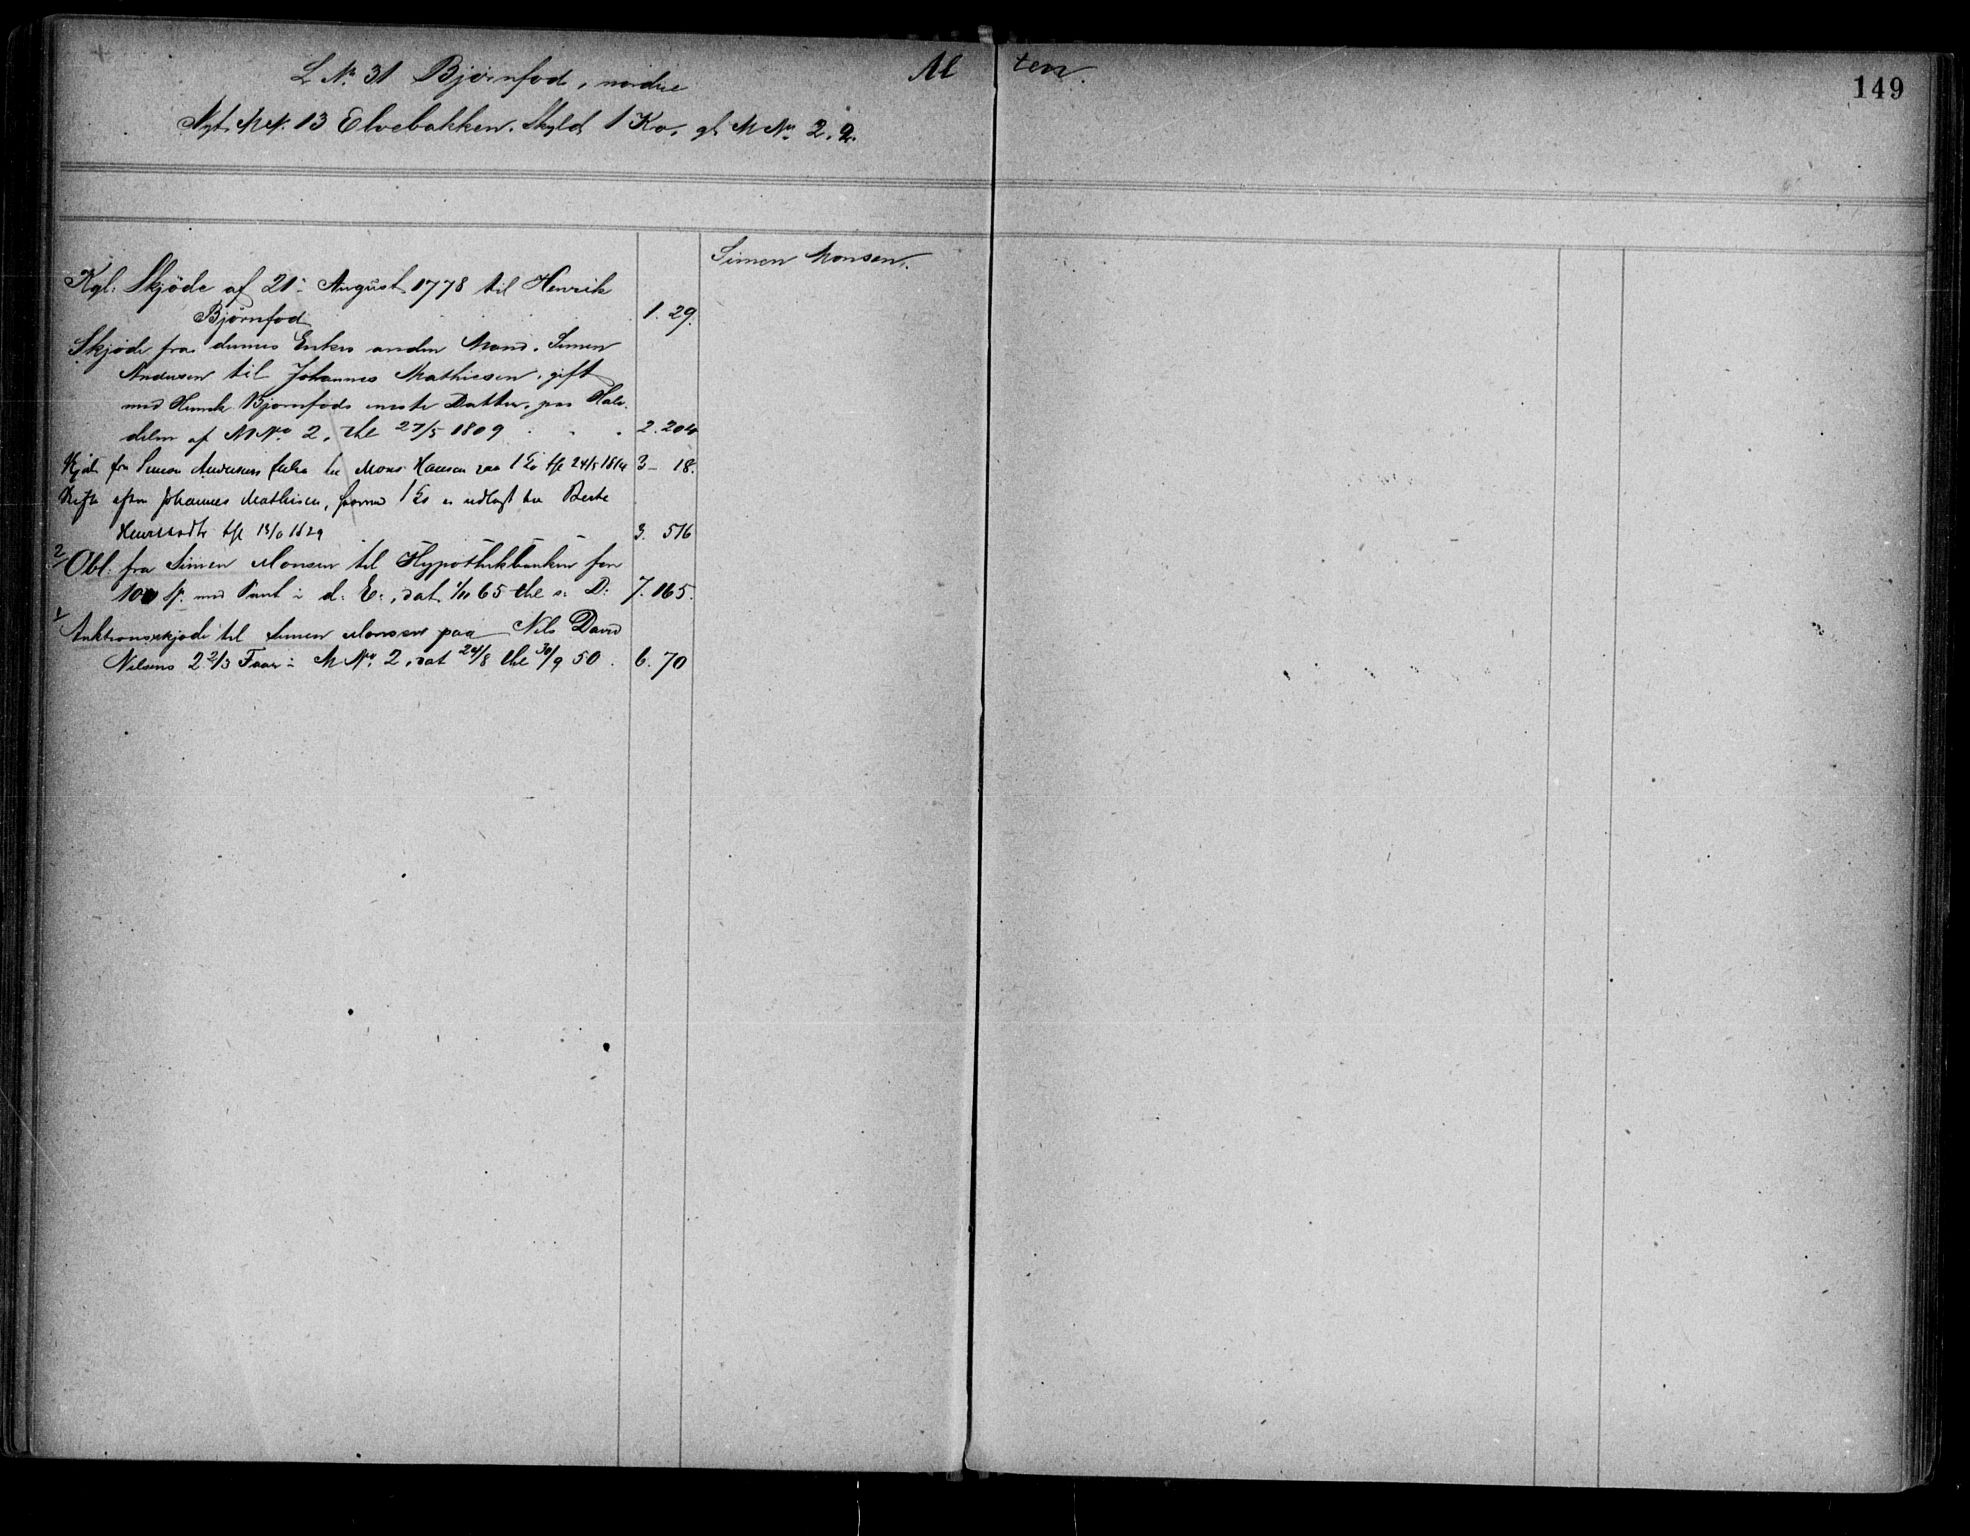 L. No. 31 Bjørnfod, nordre
Al ten.
149
Nyt M.N. 13 Elvebakken. Skyld 1 Ko, gl. M No. 2. 2.
Simon Monsen.
Kgl. Skjøde af 21. August 1778 til Henrik
Bjørnfod 1. 29.
Skjøde fra dennes Enkes anden Mand, Simen
Andersen til Johannes Mathiesen, gift
med Henrik Bjørnfods eneste Datter, paa Halv-
delen af M No. 2, thl 27/5 1809 2. 204
fra Simon Andersens Enke til Mons Hansen paa 1 Ko 1814 3 - 18.
Skifte efter Johannes Mathisen, 1 Ko er udlagt til Berte
Henriksdtr 1829 3. 516
2/ Obl: fra Simen Monsen til Hypothekbanken for
100 Sp. med Pant i d: E:, dat. 1/11 65 thl s: D: 7. 165.
1/ Auktionsskjøde til Simen Monsen paa Nils David
Nilsens 2 2/3 Faar i M No. 2, dat 24/8 thl 30/9 50. 6. 70